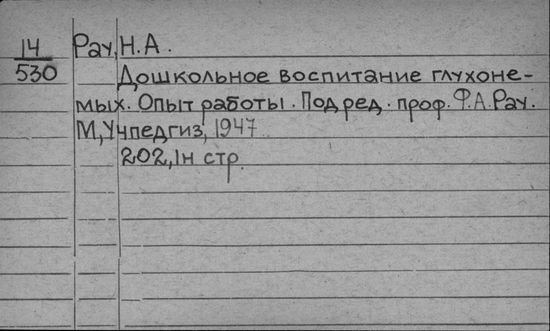 14 Рау, Н. А.
530 Дошкольное воспитание глухоне-
мых. Опыт работы. Под ред. проф. Ф. А. Рау.
М, Учпедгиз, 1947.
202, 1н стр.